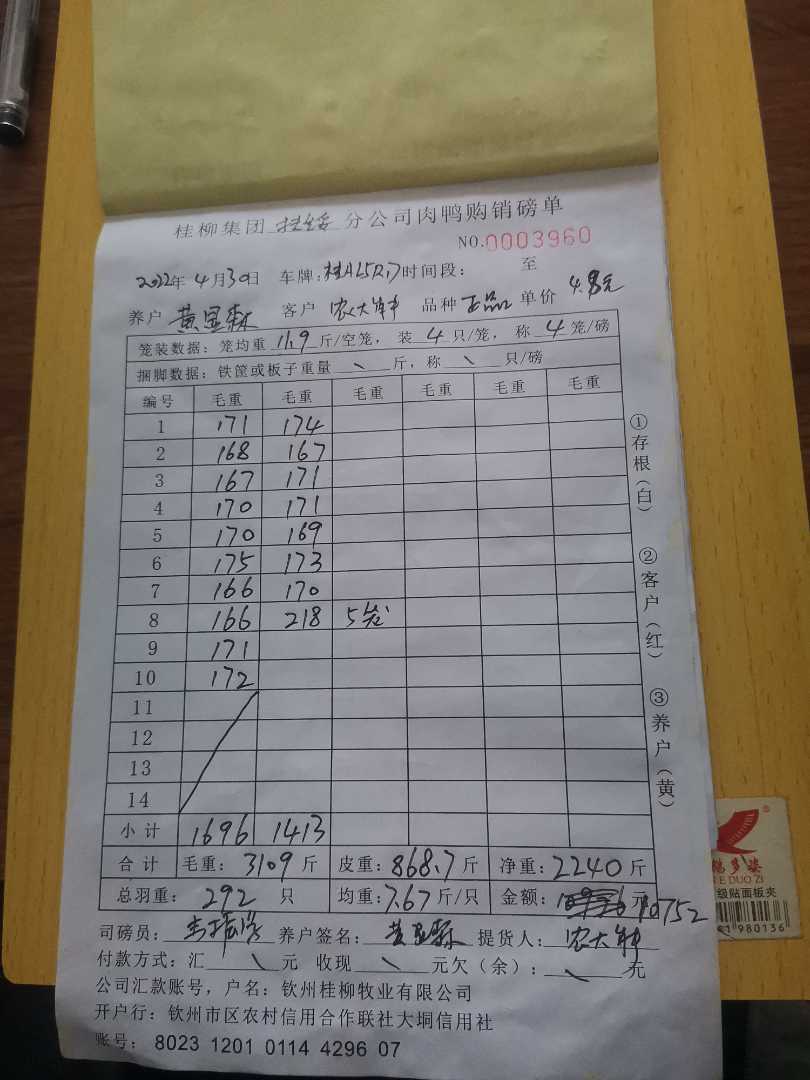 桂柳集团 扶绥 分公司肉鸭购销磅单
NO.0003960
2022年4月30日 车牌: 时间段: 至
养户 黄显森 客户 农大 品种 正品 单价 4.8元
笼装数据: 笼均重 11.9 斤/空笼, 装 4 只/笼, 称 4 笼/磅
捆脚数据: 铁筐或板子重量 \ 斤, 称 \ 只/磅
编号 毛重 毛重 毛重 毛重 毛重 毛重
1 171 174
2 168 167
3 167 171
4 170 171
5 170 169
6 175 173
7 166 170
8 166 218 5笼
9 171
10 172
11
12
13
14
小计 1696 1413
合计 毛重: 3109 斤 皮重: 868.7 斤 净重: 2240 斤
总羽重: 292 只 均重: 7.67 斤/只 金额: 元 10752
司磅员: 养户签名: 黄显森 提货人: 农大
付款方式: 汇 \ 元 收现 \ 元欠(余): \ 元
公司汇款账号, 户名: 钦州桂柳牧业有限公司
开户行: 钦州市区农村信用合作联社大垌信用社
账号: 8023 1201 0114 4296 07
①存根(白)
②客户(红)
③养户(黄)
多姿
E DUO ZI
级贴面板夹
980136